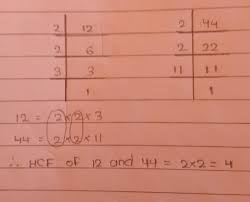 2 | 12    2 | 44
2 | 6    2 | 22
3 | 3    11 | 11
| 1    | 1
12 = 2 × 2 × 3
44 = 2 × 2 × 11
∴ HCF of 12 and 44 = 2×2 = 4